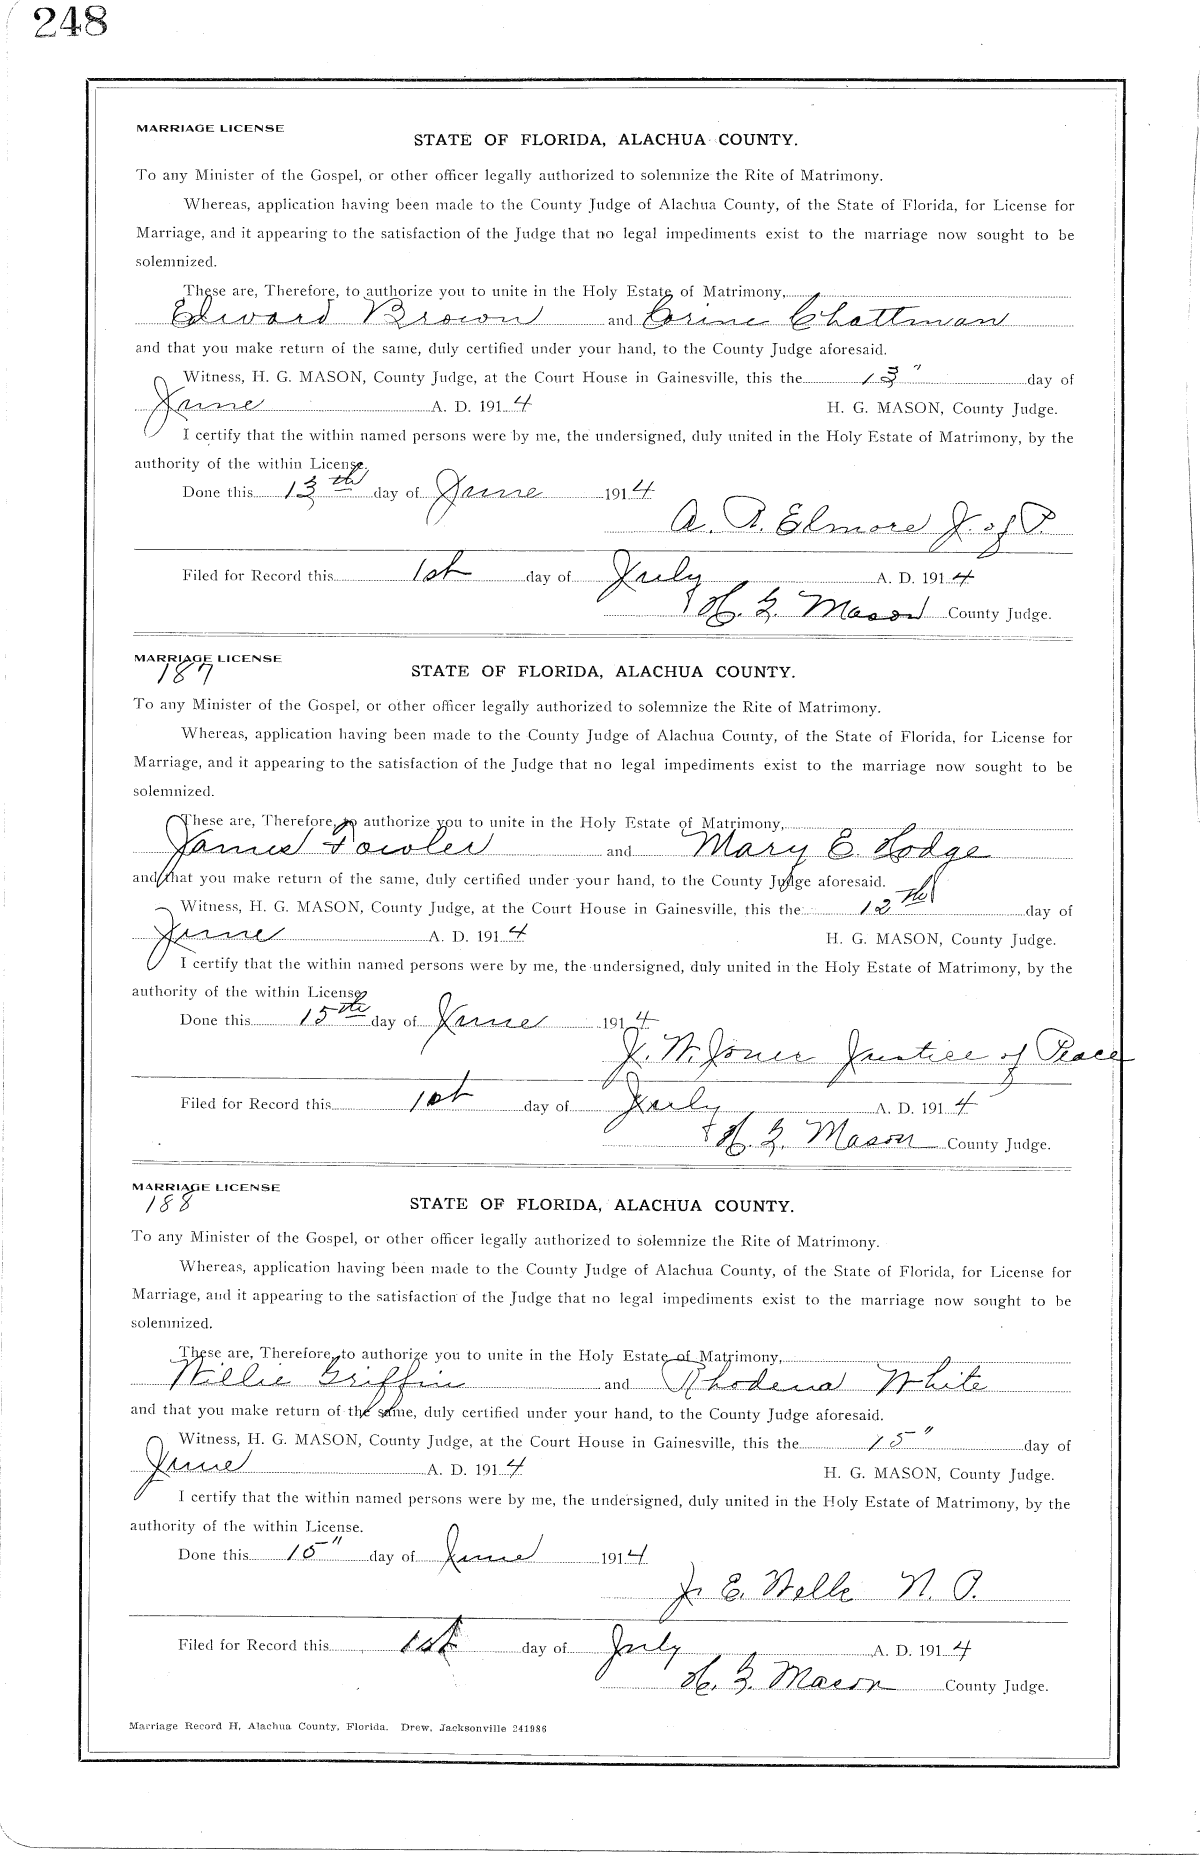 248
MARRIAGE LICENSE
STATE OF FLORIDA, ALACHUA COUNTY.
To any Minister of the Gospel, or other officer legally authorized to solemnize the Rite of Matrimony.
Whereas, application having been made to the County Judge of Alachua County, of the State of Florida, for License for
Marriage, and it appearing to the satisfaction of the Judge that no legal impediments exist to the marriage now sought to be
solemnized.
These are, Therefore, to authorize you to unite in the Holy Estate of Matrimony,
Edward Brown and Corine Chattman
and that you make return of the same, duly certified under your hand, to the County Judge aforesaid.
Witness, H. G. MASON, County Judge, at the Court House in Gainesville, this the 13" day of
June A. D. 1914 H. G. MASON, County Judge.
I certify that the within named persons were by me, the undersigned, duly united in the Holy Estate of Matrimony, by the
authority of the within License.
Done this 13th day of June 1914
A. R. Elmore J. of P.
Filed for Record this 1st day of July A. D. 1914
H. G. Mason County Judge.
MARRIAGE LICENSE
187
STATE OF FLORIDA, ALACHUA COUNTY.
To any Minister of the Gospel, or other officer legally authorized to solemnize the Rite of Matrimony.
Whereas, application having been made to the County Judge of Alachua County, of the State of Florida, for License for
Marriage, and it appearing to the satisfaction of the Judge that no legal impediments exist to the marriage now sought to be
solemnized.
These are, Therefore, to authorize you to unite in the Holy Estate of Matrimony,
James Fowler and Mary E. Hodge
and that you make return of the same, duly certified under your hand, to the County Judge aforesaid.
Witness, H. G. MASON, County Judge, at the Court House in Gainesville, this the 12th day of
June A. D. 1914 H. G. MASON, County Judge.
I certify that the within named persons were by me, the undersigned, duly united in the Holy Estate of Matrimony, by the
authority of the within License
Done this 15th day of June 1914
J. W. Jones Justice of Peace
Filed for Record this 1st day of July A. D. 1914
H. G. Mason County Judge.
MARRIAGE LICENSE
188
STATE OF FLORIDA, ALACHUA COUNTY.
To any Minister of the Gospel, or other officer legally authorized to solemnize the Rite of Matrimony.
Whereas, application having been made to the County Judge of Alachua County, of the State of Florida, for License for
Marriage, and it appearing to the satisfaction of the Judge that no legal impediments exist to the marriage now sought to be
solemnized.
These are, Therefore, to authorize you to unite in the Holy Estate of Matrimony,
Willie Griffin and Rhodena White
and that you make return of the same, duly certified under your hand, to the County Judge aforesaid.
Witness, H. G. MASON, County Judge, at the Court House in Gainesville, this the 15" day of
June A. D. 1914 H. G. MASON, County Judge.
I certify that the within named persons were by me, the undersigned, duly united in the Holy Estate of Matrimony, by the
authority of the within License.
Done this 15" day of June 1914
J. E. Wells N. P.
Filed for Record this 1st day of July A. D. 1914
H. G. Mason County Judge.
Marriage Record H, Alachua County, Florida. Drew, Jacksonville 241986